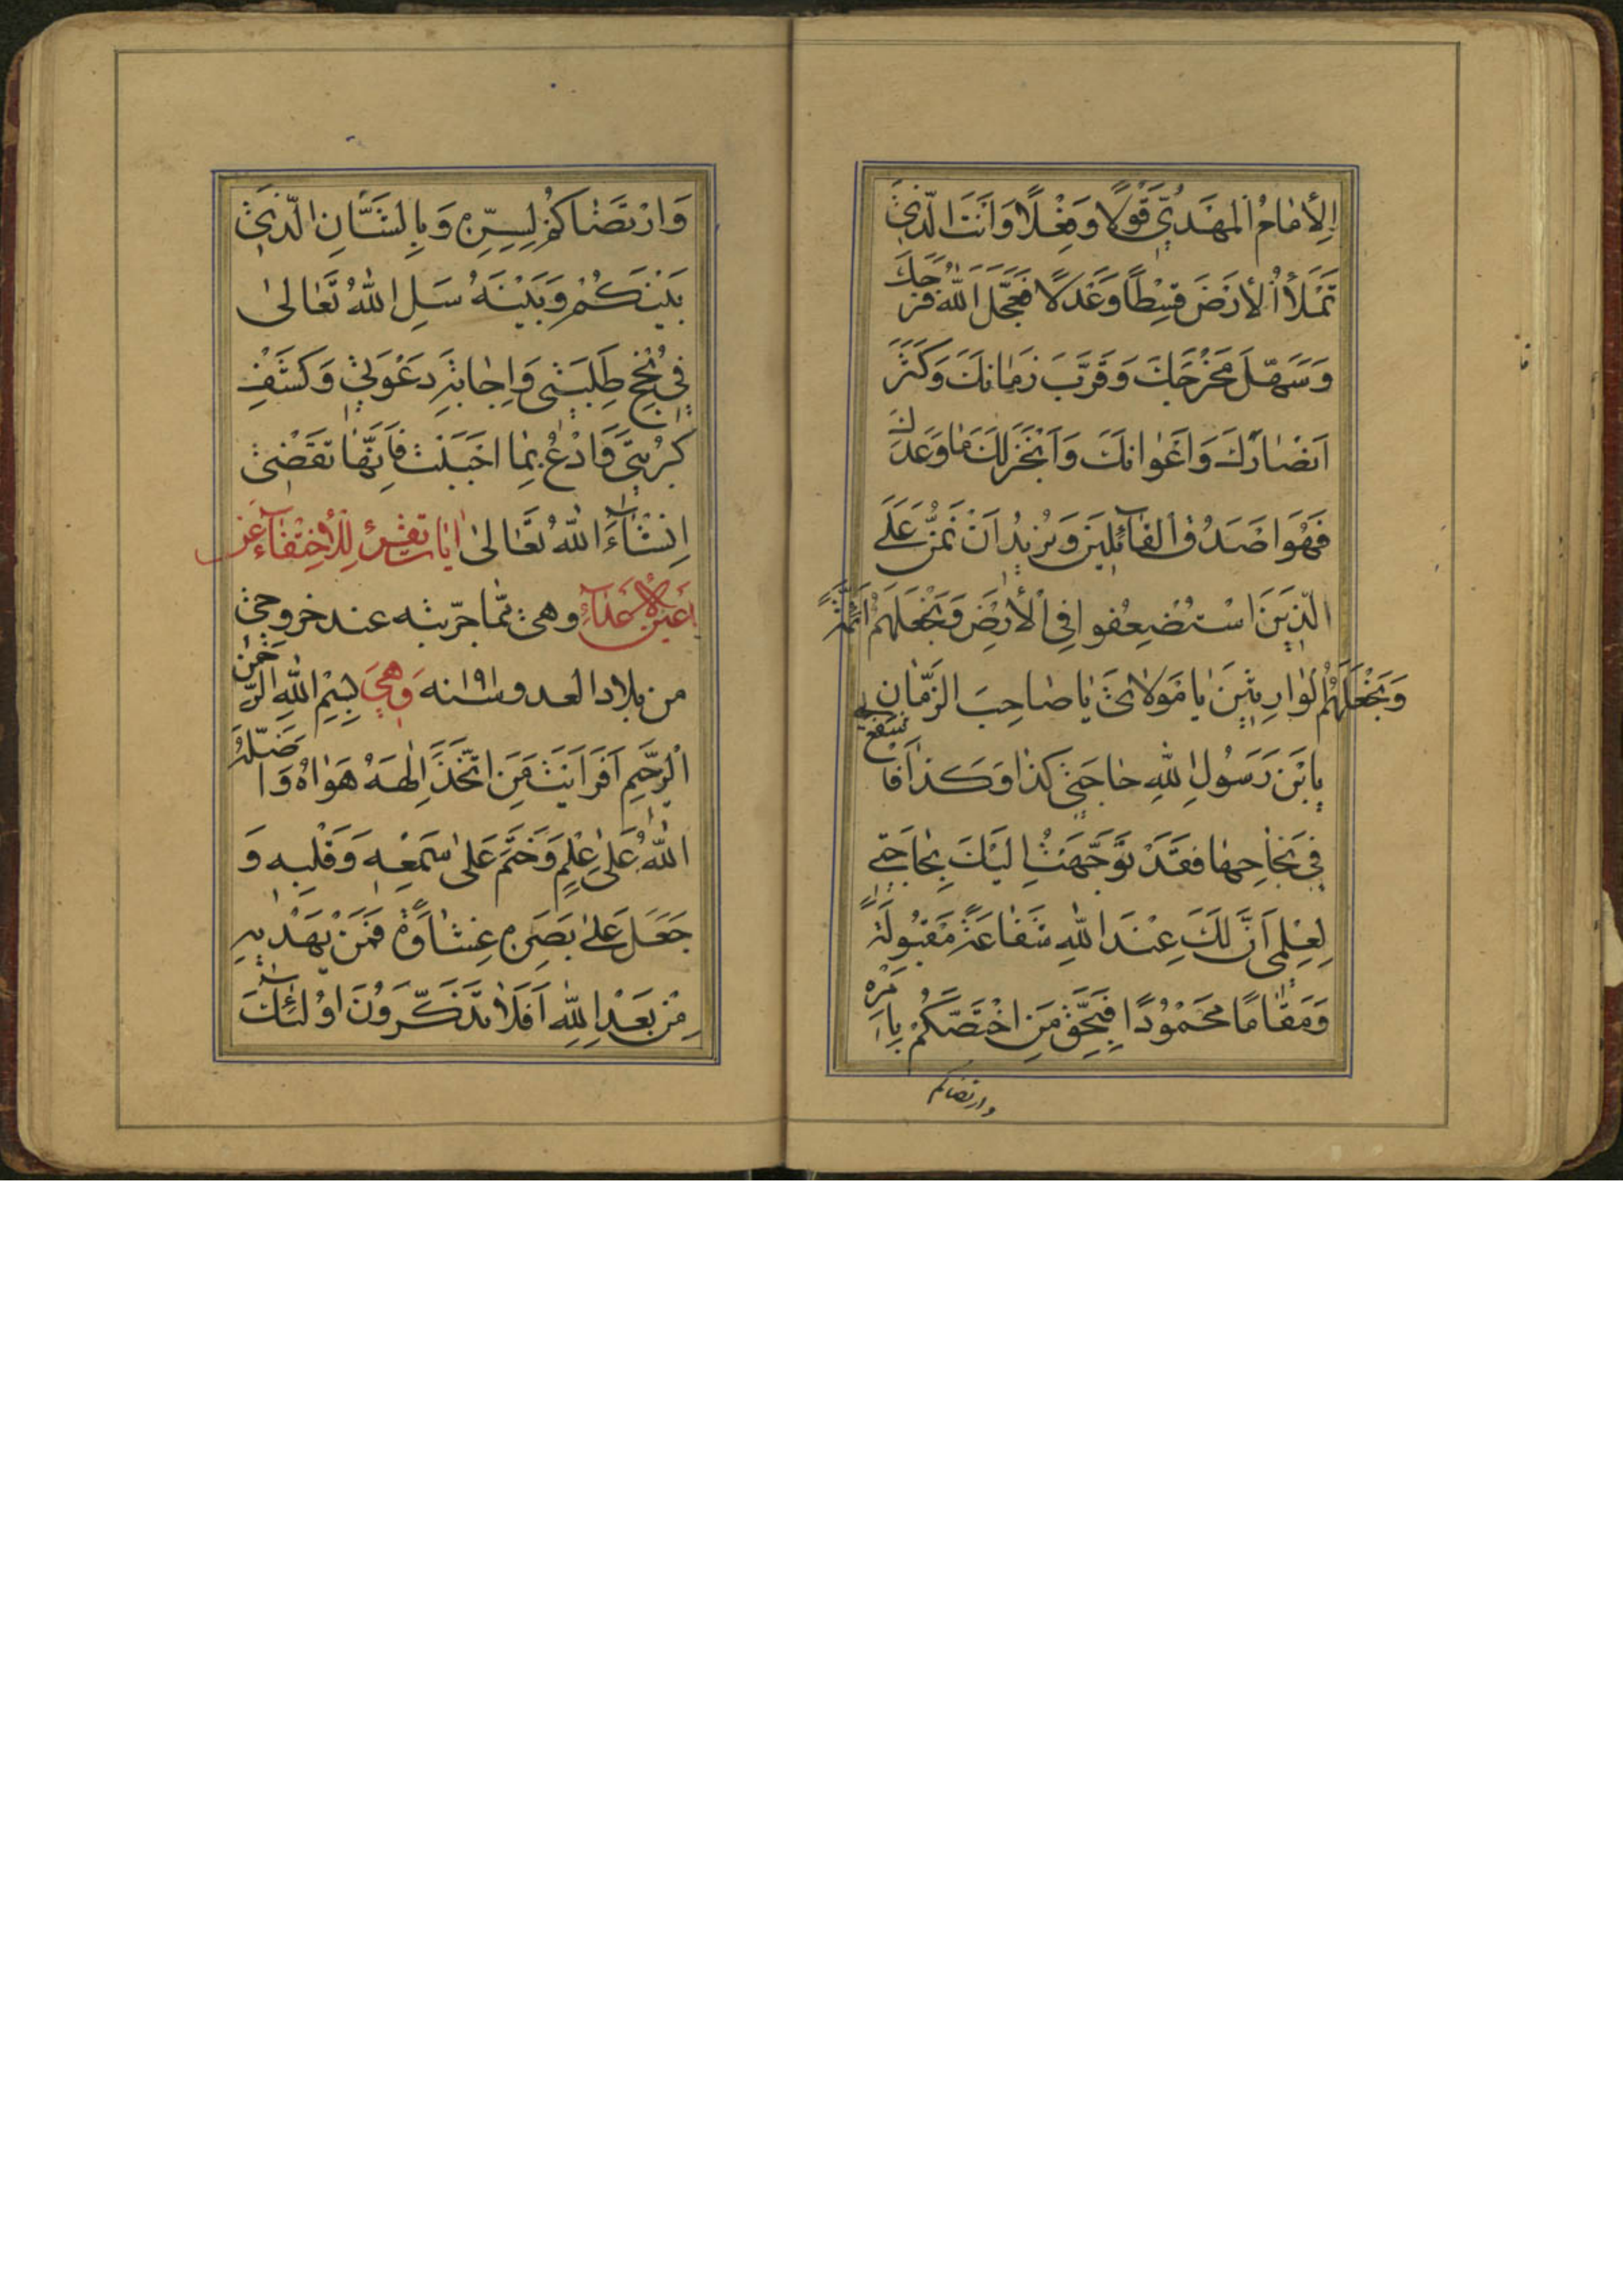 اِلْأِمٰامُ الْمَهْدِيُّ قَوْلًا وَفِعْلًا وَاَنْتَ الَّذي
تَمْلَأُ الْأَرْضَ قِسْطًا وَعَدْلًا فَعَجَّلَ اللّٰهُ فَرَجَكَ
وَسَهَّلَ مَخْرَجَكَ وَقَرَّبَ زَمٰانَكَ وَكَثَّرَ
اَنْصٰارَكَ وَاَعْوٰانَكَ وَاَنْجَزَ لَكَ مٰا وَعَدَكَ
فَهُوَ اَصْدَقُ الْقٰآئِلينَ وَنُريدُ اَنْ نَمُنَّ عَلَى
الَّذينَ اسْتُضْعِفُوا فِي الْأَرْضِ وَنَجْعَلَهُمْ اَئِمَّةً
وَنَجْعَلَهُمُ الْوٰارِثينَ يٰا مَوْلٰايَ يٰا صٰاحِبَ الزَّمٰانِ
يابْنَ رَسُولِ اللّٰهِ حٰاجَتي كَذٰا وَكَذٰا فَاشْفَعْ لي
في نَجٰاحِهٰا فَقَدْ تَوَجَّهْتُ اِلَيْكَ بِحٰاجَتي
لِعِلْمي اَنَّ لَكَ عِنْدَ اللّٰهِ شَفٰاعَةً مَقْبُولَةً
وَمَقٰامًا مَحْمُودًا فَبِحَقِّ مَنِ اخْتَصَّكُمْ بِاَمْرِهِ
وارتضاكم
وَارْتَضٰاكُمْ لِسِرِّهِ وَبِالشَّأْنِ الَّذي
بَيْنَكُمْ وَبَيْنَهُ سَلِ اللّٰهَ تَعٰالىٰ
في نُجْحِ طَلِبَتي وَاِجٰابَةِ دَعْوَتي وَكَشْفِ
كُرْبَتي وَادْعُ بِمٰا اَحْبَبْتَ فَاِنَّهٰا تُقْضىٰ
اِنْشٰآءَ اللّٰهُ تَعٰالىٰ اٰيات تقرء لِلْأِخْتِفٰآءِ عَنْ
اَعْيُنِ الْأَعْدٰآءِ وهي ممّا جرّبته عند خروجي
من بلاد العدو وَهِيَ بِسْمِ اللّٰهِ الرَّحْمٰنِ
الرَّحيمِ اَفَرَاَيْتَ مَنِ اتَّخَذَ اِلٰهَهُ هَوٰاهُ وَاَضَلَّهُ
اللّٰهُ عَلىٰ عِلْمٍ وَخَتَمَ عَلىٰ سَمْعِهِ وَقَلْبِهِ وَ
جَعَلَ عَلىٰ بَصَرِهِ غِشٰاوَةً فَمَنْ يَهْديهِ
مِنْ بَعْدِ اللّٰهِ اَفَلٰا تَذَكَّرُونَ اوُلٰئِكَ